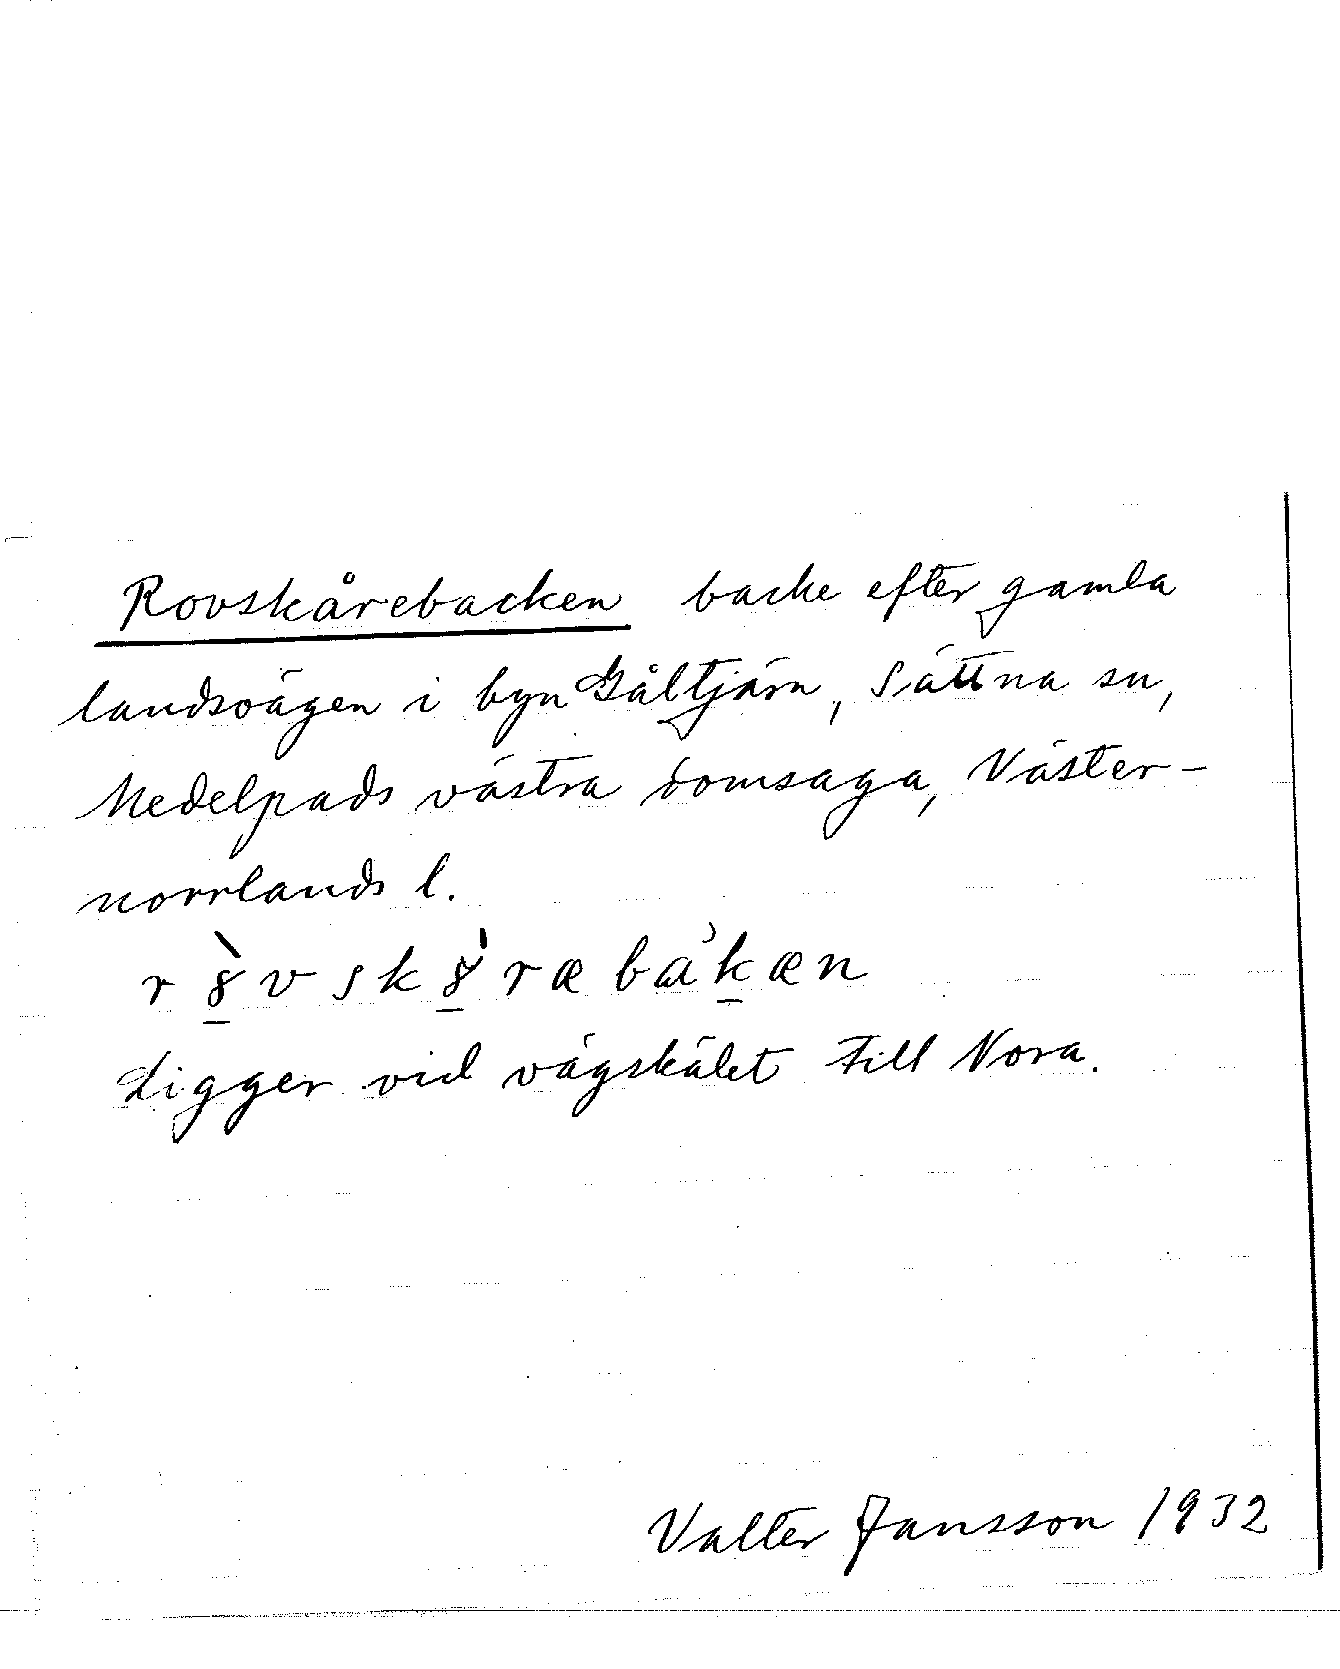 Rovskårebacken backe efter gamla
landsvägen i byn Gåltjärn, Sättna sn,
Medelpads västra domsaga, Väster-
norrlands l.
r8̲̀vsk8̲̍ræbak̲̓æn
Ligger vid vägskälet till Nora.
Valter Jansson 1932